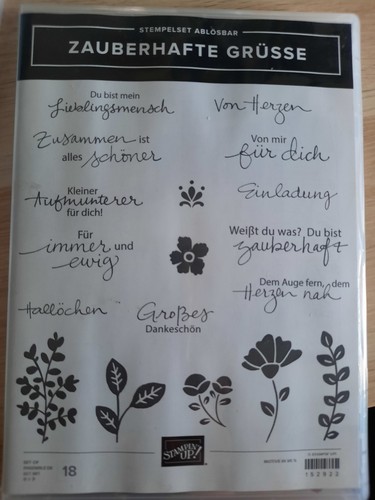 STEMPELSET ABLÖSBAR
ZAUBERHAFTE GRÜSSE
Du bist mein
Lieblingsmensch
Von Herzen
Zusammen ist
alles schöner
Von mir
für dich
Kleiner
Aufmunterer
für dich!
Einladung
Für
immer und
ewig
Weißt du was? Du bist
zauberhaft
Dem Auge fern, dem
Herzen nah
Hallöchen
Großes
Dankeschön
18
STAMPIN'
UP!
152922